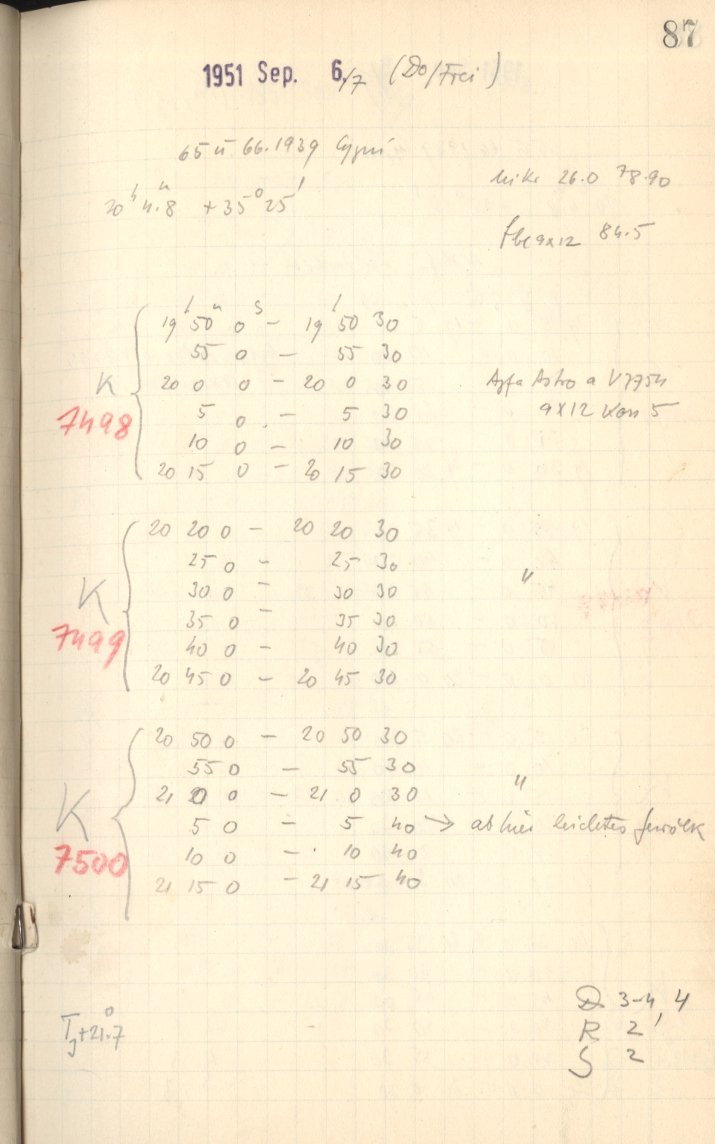 87
1951 Sep. 6./7 (Do/Frei)
65 u 66.1939 Cygni
20ʰ 4ᵐ.8 +35° 25'
26.0 78.90
9x12 84.5
19ʰ 50ᵐ 0ˢ – 19ʰ 50 30
55 0 – 55 30
K 20 0 0 – 20 0 30 Agfa Astro a V7954
7498 5 0 – 5 30 9x12 Kass 5
10 0 – 10 30
20 15 0 – 20 15 30
20 20 0 – 20 20 30
25 0 – 25 30 "
K 30 0 – 30 30
7499 35 0 – 35 30
40 0 – 40 30
20 45 0 – 20 45 30
20 50 0 – 20 50 30
55 0 – 55 30 "
21 0 0 – 21 0 30
K 5 0 – 5 40 → ab hier leichtes Gewölk
7500 10 0 – 10 40
21 15 0 – 21 15 40
D 3-4, 4
T +21.7° R 2
S 2